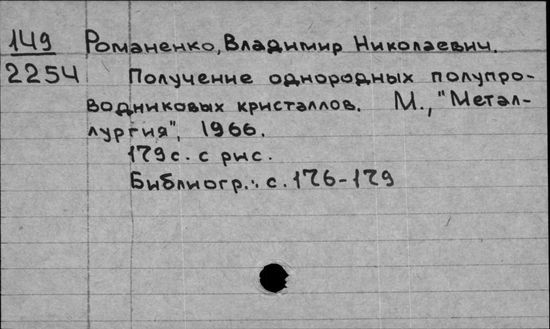 149 Романенко, Владимир Николаевич.
2254 Получение однородных полупро-
водниковых кристаллов. М., "Метал-
лургия", 1966.
179с. с рис.
Библиогр.: с. 176-179